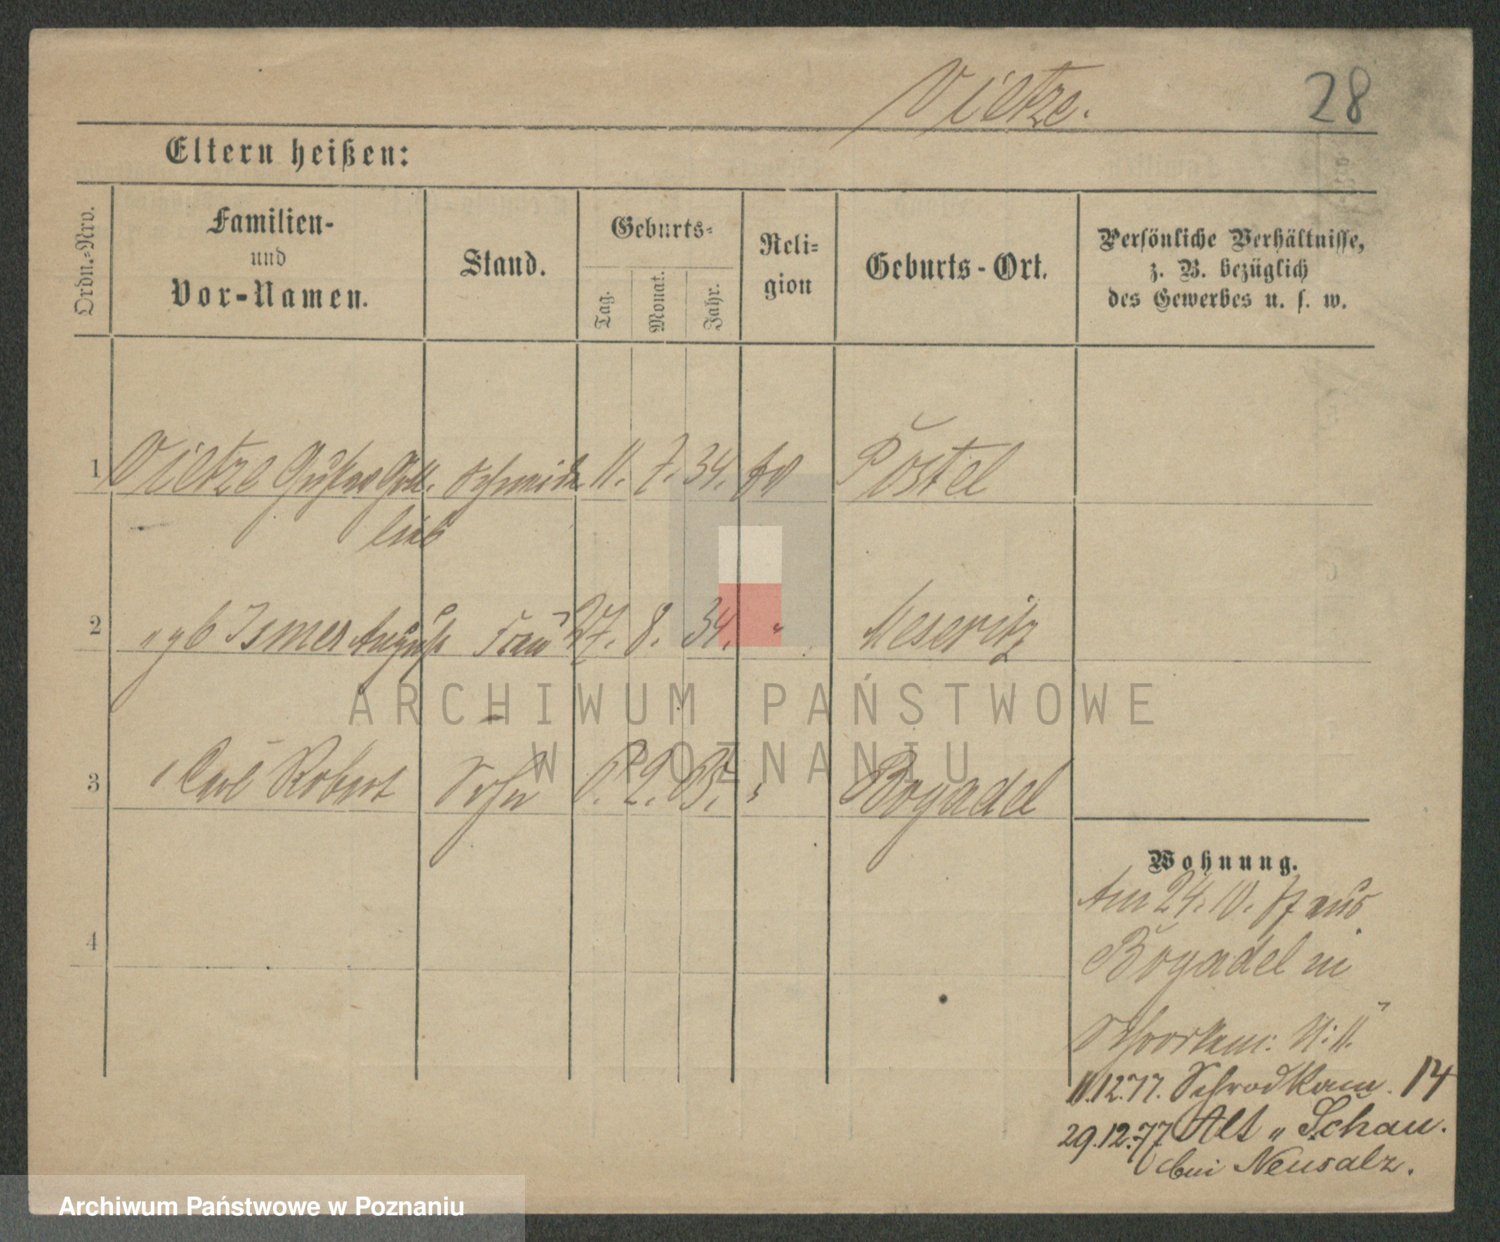 Vietze.
28
Eltern heißen:
Ordn.-Nro.
Familien-
und
Vor-Namen.
Stand.
Geburts-
Tag.
Monat.
Jahr.
Reli-
gion
Geburts-Ort.
Persönliche Verhältnisse,
z. B. bezüglich
des Gewerbes u. s. w.
1 Vietze Gustav Gott- Schmidt 11. 7. 34. Postel
lieb
2 " Ismer August Frau 27. 8. 34. " Meseritz
3 " Carl Robert Sohn 6. 2. 65. " Boyadel
4
Wohnung.
Am 24. 10. 77 aus
Boyadel in
11.12.77. Schrodkam. 14
29.12.77. Alt " Schau.
bei Neusalz.
ARCHIWUM PAŃSTWOWE
W POZNANIU
Archiwum Państwowe w Poznaniu